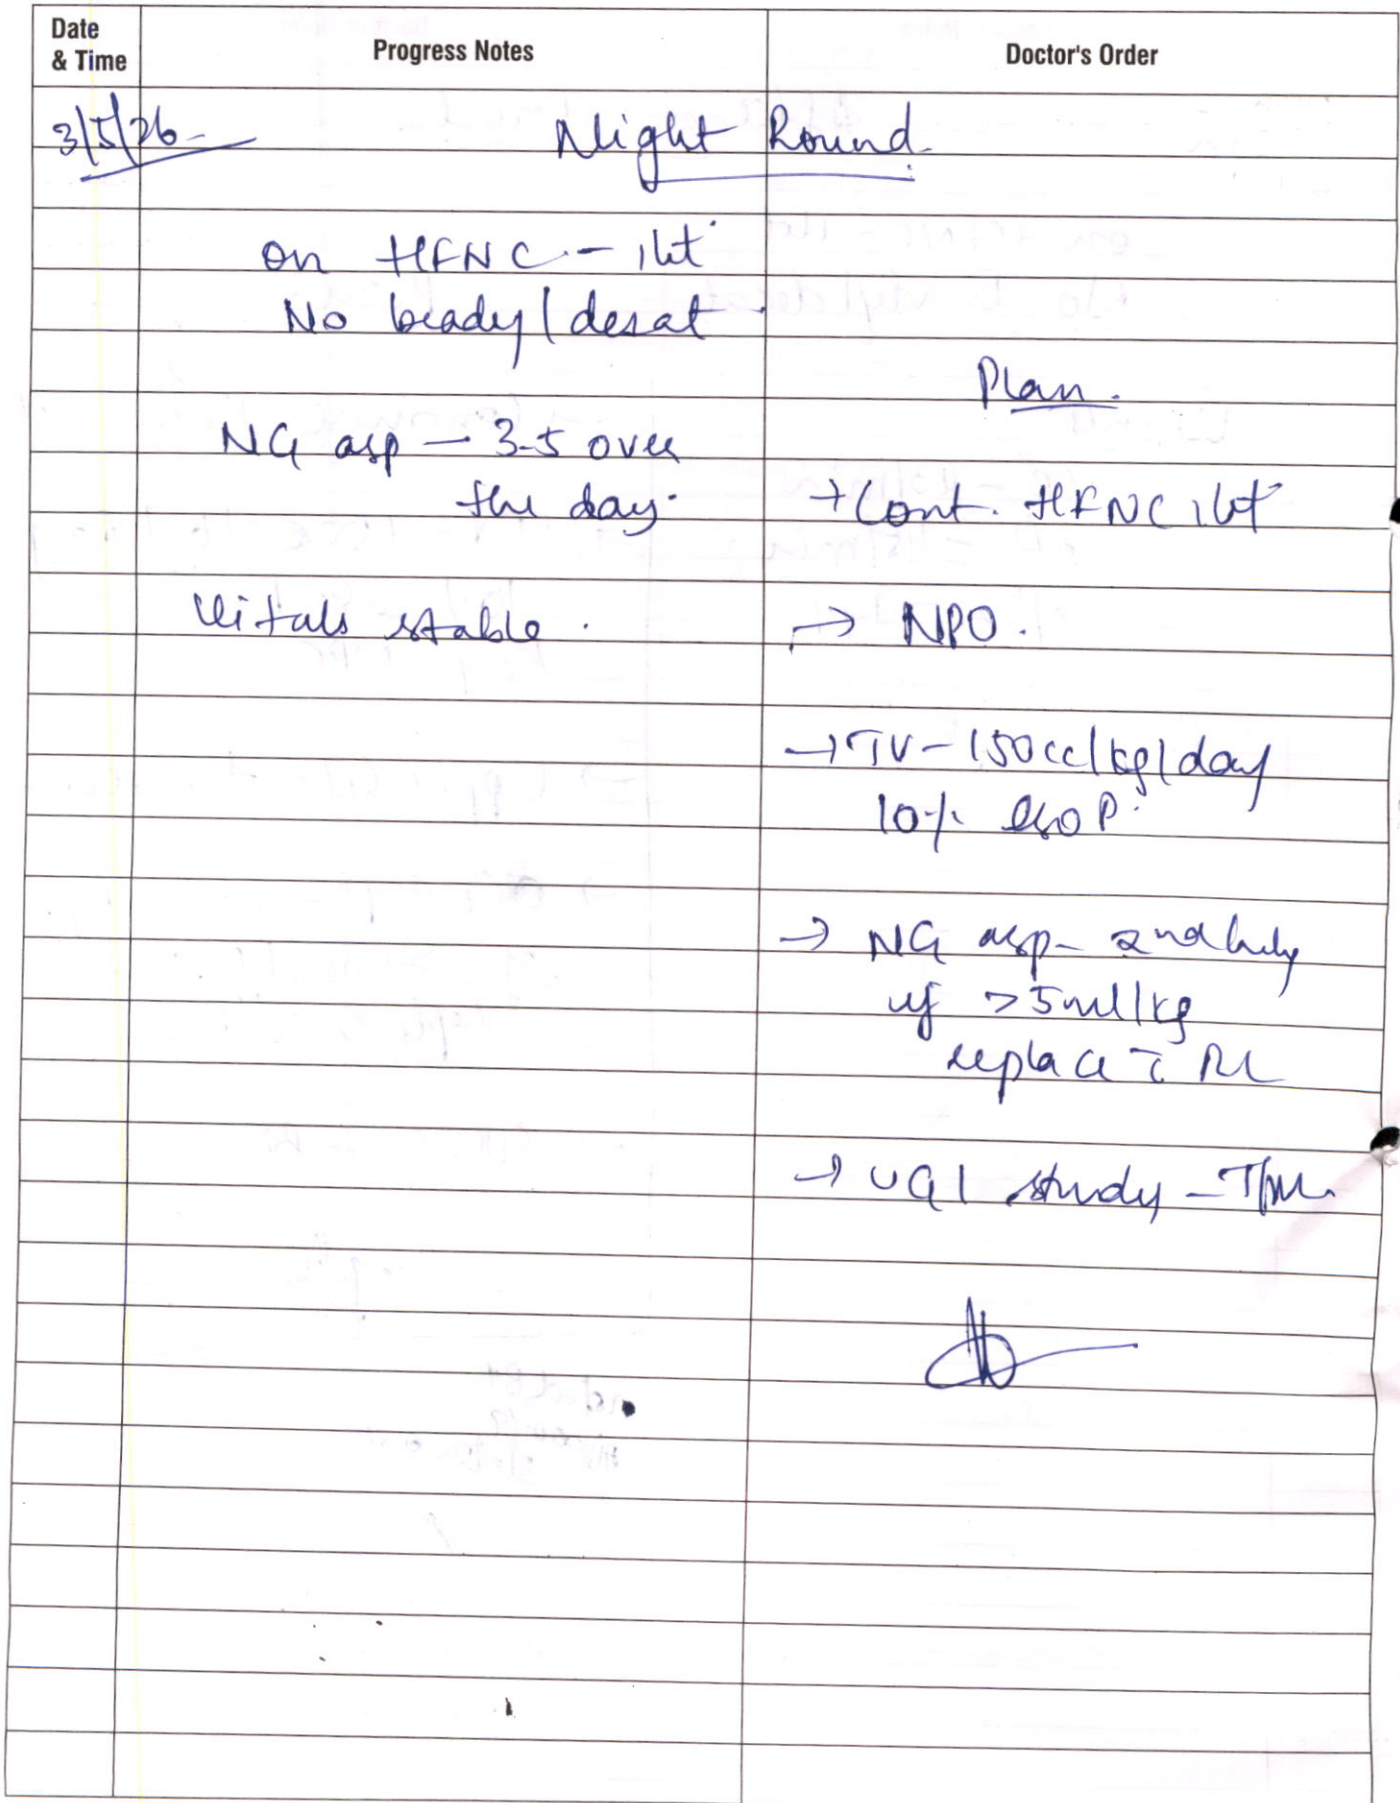 Date & Time
Progress Notes
Doctor's Order
3/5/26
Night Round
on HFNC - 1 lit
No brady/desat
Plan.
NG asp - 3-5 over
the day.
→ Cont. HFNC 1 lit
Vitals stable.
→ NPO.
→ TV - 150cc/kg/day
10%
→ NG asp - 2nd hrly
if >5ml/kg
replace c̄ RL
→ UGI study - T/M